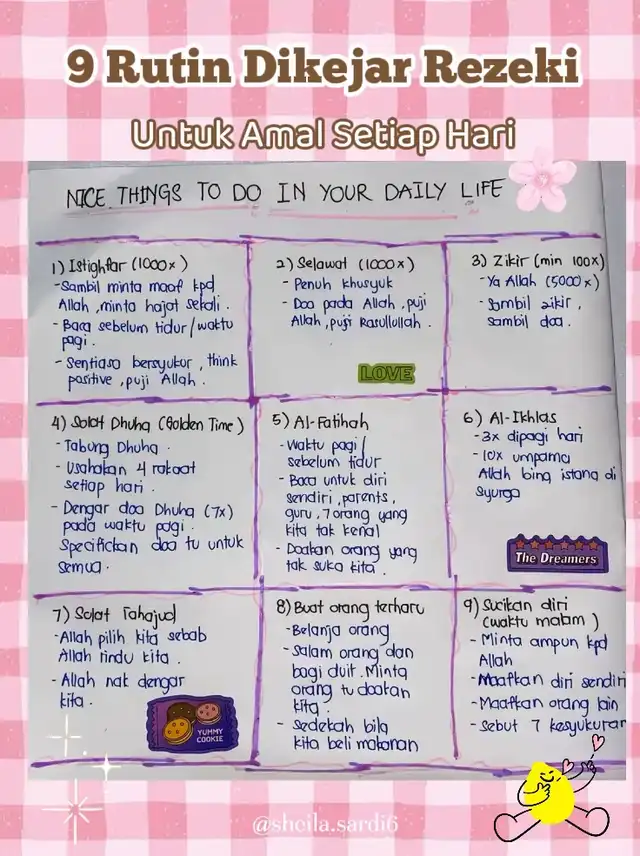 9 Rutin Dikejar Rezeki
Untuk Amal Setiap Hari
NICE THINGS TO DO IN YOUR DAILY LIFE
1) Istighfar (1000x)
-Sambil minta maaf kpd
Allah, minta hajat sekali.
- Baca sebelum tidur/waktu
pagi.
- Sentiasa bersyukur, think
positive, puji Allah.
2) Selawat (1000x)
- Penuh khusyuk
- Doa pada Allah, puji
Allah, puji Rasullullah.
LOVE
3) Zikir (min 100x)
-Ya Allah (5000x)
-Sambil zikir,
sambil doa.
4) Solat Dhuha (Golden Time)
-Tabung Dhuha.
- Usahakan 4 rakaat
setiap hari.
- Dengar doa Dhuha (7x)
pada waktu pagi.
Specifickan doa tu untuk
semua.
5) Al-Fatihah
-Waktu pagi/
sebelum tidur
- Baca untuk diri
sendiri, parents,
guru, 7 orang yang
kita tak kenal
- Doakan orang yang
tak suka kita.
6) Al-Ikhlas
-3x dipagi hari
-10x umpama
Allah bina istana di
Syurga
The Dreamers
7) Solat Tahajud
-Allah pilih kita sebab
Allah rindu kita.
- Allah nak dengar
kita.
YUMMY
COOKIE
8) Buat orang terharu
-Belanja orang
-Salam orang dan
bagi duit. Minta
orang tu doakan
kita.
- Sedekah bila
kita beli makanan
9) Sucikan diri
(waktu malam)
- Minta ampun kpd
Allah
-Maafkan diri sendiri
-Maafkan orang lain
- Sebut 7 kesyukuran
@sheila.sardi6